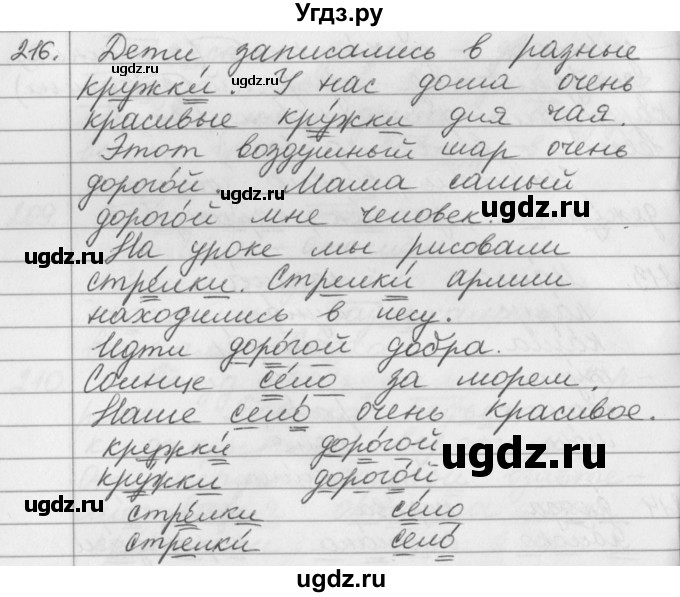 Угдз.ру
216. Дети записались в разные
кружки́. У нас дома очень
красивые кру́жки для чая.
Этот воздушный шар очень
дорого́й. Маша самый
дорого́й мне человек.
На уроке мы рисовали
стре́лки. Стрелки́ армии
находились в лесу.
Идти доро́гой добра.
Солнце се́ло за морем.
Наше село́ очень красивое.
кружки́ доро́гой
кру́жки дорого́й
стре́лки се́ло
стрелки́ село́
gdz.ru
gdz.ru
gdz.ru
uGdz.ru
gdz.ru
uGdz.ru
gdz.ru
uGdz.ru
gdz.ru
uGdz.ru